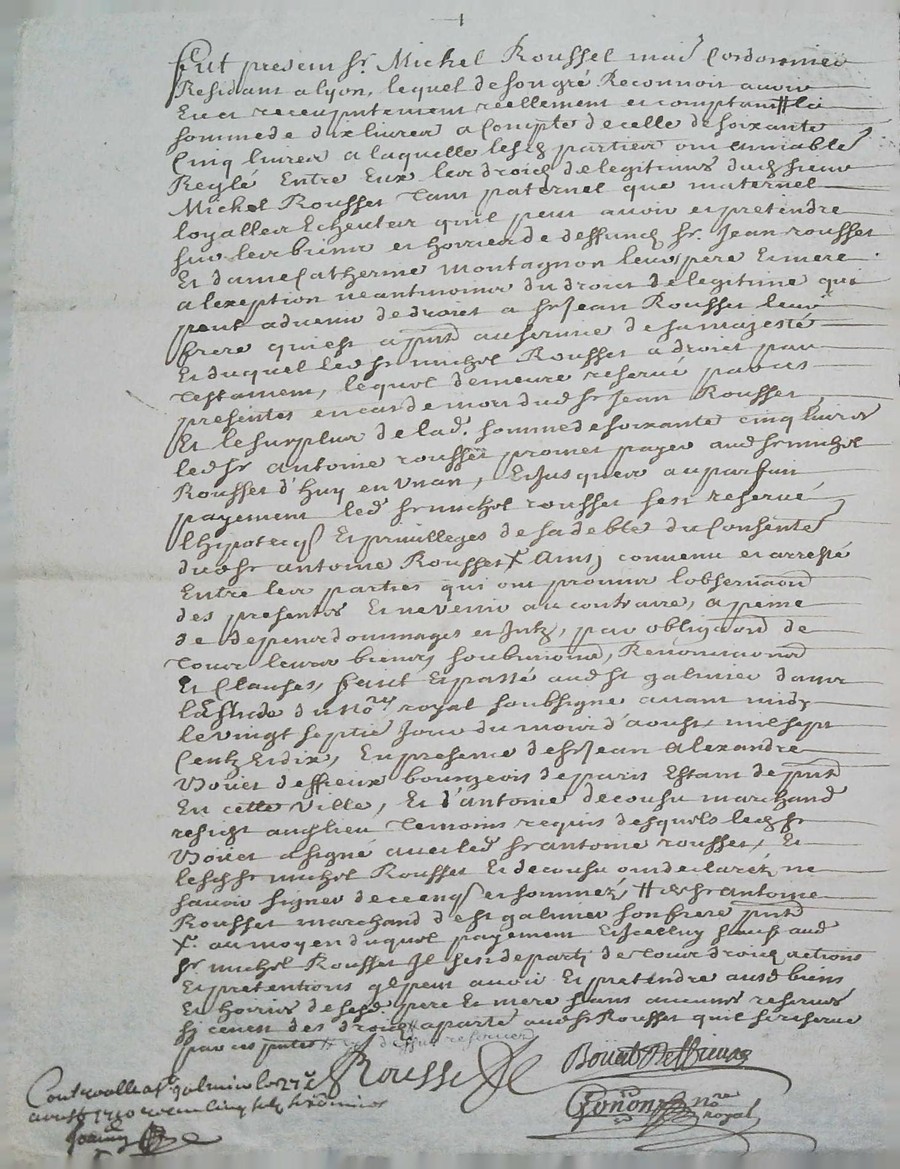 1
Fut present Sr. Michel Rousset mai Cordonnier
Residant a lyon, lequel de son gré Reconnoit avoir
Eu et receu presentement reellement et comptant # la
somme de dix livres a Compte de celle de soixante
Cinq livres a laquelle lesd parties ont amiablet
Reglé Entre Eux les droicts de legitimes dud sieur
Michel Rousset tant paternel que maternel
loyaller Echeuter quil peut avoir et pretendre
sur les biens et hoiries de deffunct Sr. Jean rousset
Et dame Catherine Montagnon leurs pere Et mere
a lexeption neantmoins du droit de legitime qui
peut advenir de droict a Sr Jean Rousset leur
frere qui est a pnt au service de sa majesté
Et duquel led Sr michel Rousset a droict par
Testament, lequel demeure reservé par ces
presentes en cas de mort dud Sr Jean Rousset
Et le surplus de lad. somme de soixante cinq livres
led Sr antoine rousset promet payer aud Sr michel
Rousset d'huy en un an, Et jusques au parfait
payement led Sr michel rousset sest reservé
lhipotecq Et privilleges de sa debte du Consentet
dud Sr antoine Rousset x Ainsy convenu et arresté
Entre les parties qui ont promis lobservaon
des presentes Et ne venir au contraire, a peine
de depens dommages et Intz, par obligaon de
Tous leurs biens, soubmions, Renonciaons
Et Clauses, fait Et passé aud st galmier dans
lEstude du No.re royal soubsigné avant midy
le vingt septie Jour du mois d'aoust mil sept
Centz Et dix, En presence de Sr Jean Alexandre
Bouët deffieux bourgeois de paris Estant de pnt
En cette Ville, Et d'antoine decousu marchand
resident aud lieu Temoins requis desquels led Sr
Bouët a signé avec led Sr antoine rousset, Et
led Sr michel Rousset Et decousu ont declarez ne
savoir signer de ce enq et sommez # de Sr antoine
Rousset marchand d'est galmier son frere pnt
x. au moyen duquel payement Et Iceluy fait aud
Sr michel Rousset Il sest departi de tous droicts actions
Et pretentions ql peut avoir Et pretendre aux biens
Et hoiries de sesd. pere Et mere sans aucunes reserves
si ce nest des droicts a parté aud Sr Rousset quil se reserve
par ces pntes
Rousset
Bouët Deffieux
Controlle a st. galmier le 27e
aoust 1710 receu cinq
Ponon nre
royal